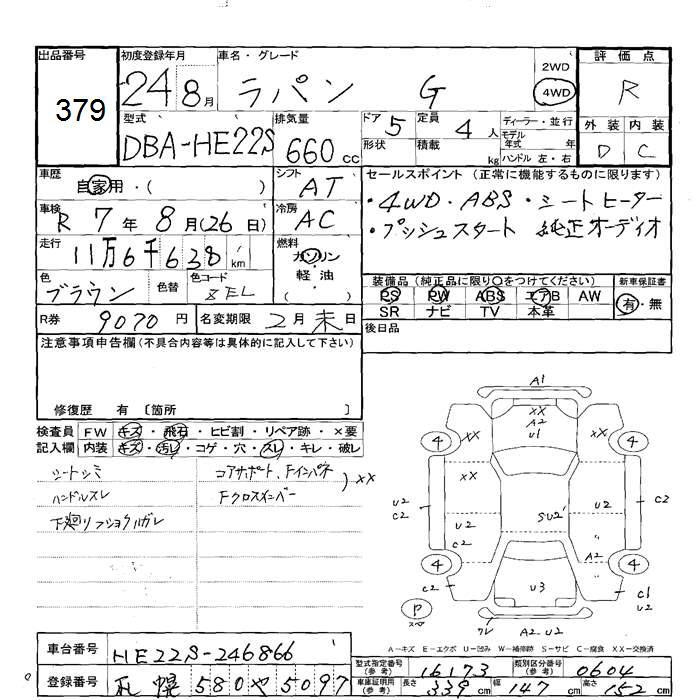 出品番号 初度登録年月 車名・グレード 2WD 4WD 評価点
379 24 8月 ラパン G R
型式 排気量 ドア 5 定員 4人 ディーラー・並行
DBA-HE22S 660cc 形状 積載 kg モデル年式 年 ハンドル 左・右 外装 内装
D C
車歴 自家用・( ) シフト AT セールスポイント (正常に機能するものに限ります)
車検 R 7年 8月(26日) 冷房 AC ・4WD・ABS・シートヒーター
・プッシュスタート 純正オーディオ
走行 11万6千638km 燃料 ガソリン・軽油 ( )
色 ブラウン 色替 色コード 装備品 (純正品に限り○をつけてください) 新車保証書
PS PW ABS エアB AW 有・無
SR ナビ TV 本革
R券 9070円 名変期限 2月末日 後日品
注意事項申告欄(不具合内容等は具体的に記入して下さい)
修復歴 有 〔箇所 〕
検査員 FW キズ・飛石・ヒビ割・リペア跡・×要
記入欄 内装 キズ・汚レ・コゲ・穴・スレ・キレ・破レ
シートシミ コアサポート、Fインパネ
ハンドルスレ Fクロスメンバー )XX
下廻リフショクハガレ
A1
XX
A2
U1
4 XX XX 4
XX
U2 C2 U2 U2 C2
SU2
A2
4 C2 U3 4 C1 U2
P
A2 U2
A-キズ E-エクボ U-凹み W-補修跡 S-サビ C-腐食 XX-交換済
車台番号 HE22S-246866
登録番号 札幌 580 や 5097
型式指定番号(参考) 16173 類別区分番号(参考) 0604
車庫証明用(参考) 長さ 339cm 幅 147cm 高さ 152cm